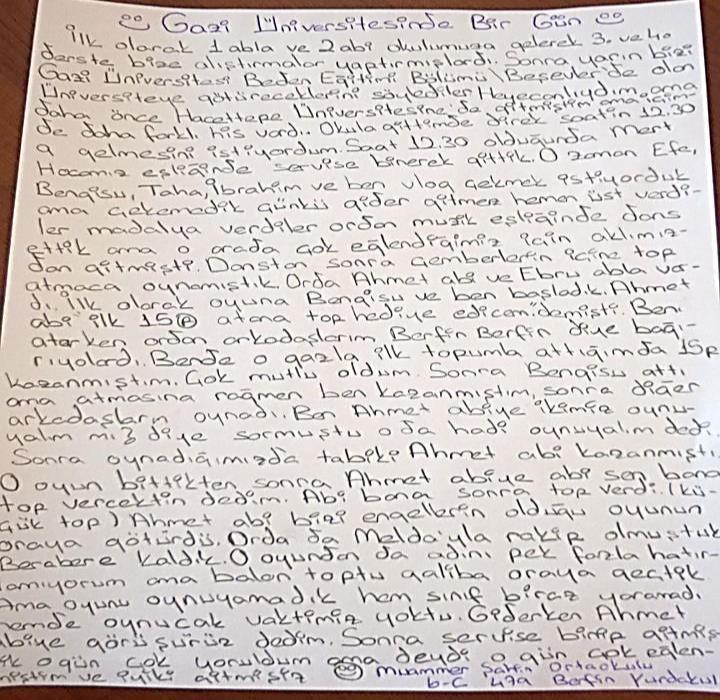 ☺ Gazi Üniversitesinde Bir Gün ☺
İlk olarak 1 abla ve 2 abi okulumuza gelerek 3. ve 4.
derste bize alıştırmalar yaptırmışlardı. Sonra yarın bizi
Gazi Üniversitesi Beden Eğitimi Bölümü\Beşevler'de olan
Üniversiteye götüreceklerini söylediler Heyecanlıydım, ama
daha önce Hacettepe Üniversitesine de gitmiştim ama içim
de daha farklı his vardı.. Okula gittiğimde direk saatin 12.30
a gelmesini istiyordum. Saat 12.30 olduğunda Mert
Hocamız eşliğinde servise binerek gittik. O zaman Efe,
Bengisu, Taha, İbrahim ve ben vlog çekmek istiyorduk
ama çekemedik çünkü gider gitmez hemen üst verdi-
ler madalya verdiler ordan muzik eşliğinde dans
ettik ama o orada çok eğlendiğimiz için aklımız-
dan gitmişti. Danstan sonra çemberlerin içine top
atmaca oynamıştık. Orda Ahmet abi ve Ebru abla var-
dı. İlk olarak oyuna Bengisu ve ben başladık. Ahmet
abi ilk 15 atana top hediye edicem demişti. Ben
atarken ordan arkadaşlarım Berfin Berfin diye bağı-
rıyolardı. Bende o gazla ilk topumla attığımda 15p
kazanmıştım. Çok mutlu oldum. Sonra Bengisu attı
ama atmasına rağmen ben kazanmıştım, sonra diğer
arkadaşların oynadı.. Ben Ahmet abiye ikimiz oynu-
yalım mı? diye sormuştu o da hadi oynuyalım dedi.
Sonra oynadığımızda tabiki Ahmet abi kazanmıştı.
O oyun bittikten sonra Ahmet abiye abi sen bana
top vercektin dedim. Abi bana sonra top verdi. (kü-
çük top) Ahmet abi bizi engellerin olduğu oyunun
oraya götürdü. Orda da Melda'yla rakip olmuştuk
Berabere kaldık. O oyundan da adını pek fazla hatır-
lamıyorum ama balon toptu galiba oraya geçtik.
Ama oyunu oynuyamadık hem sınıf biraz yaramadı
hemde oynucak vaktimiz yoktu. Giderken Ahmet
abiye görüşürüz dedim. Sonra servise binip gitmiş
tik o gün çok yoruldum ama deydi o gün çok eğlen-
miştim ve iyiki gitmişiz ☺ Muammer Şahin Ortaokulu
6-C 479 Berfin Yurdakul